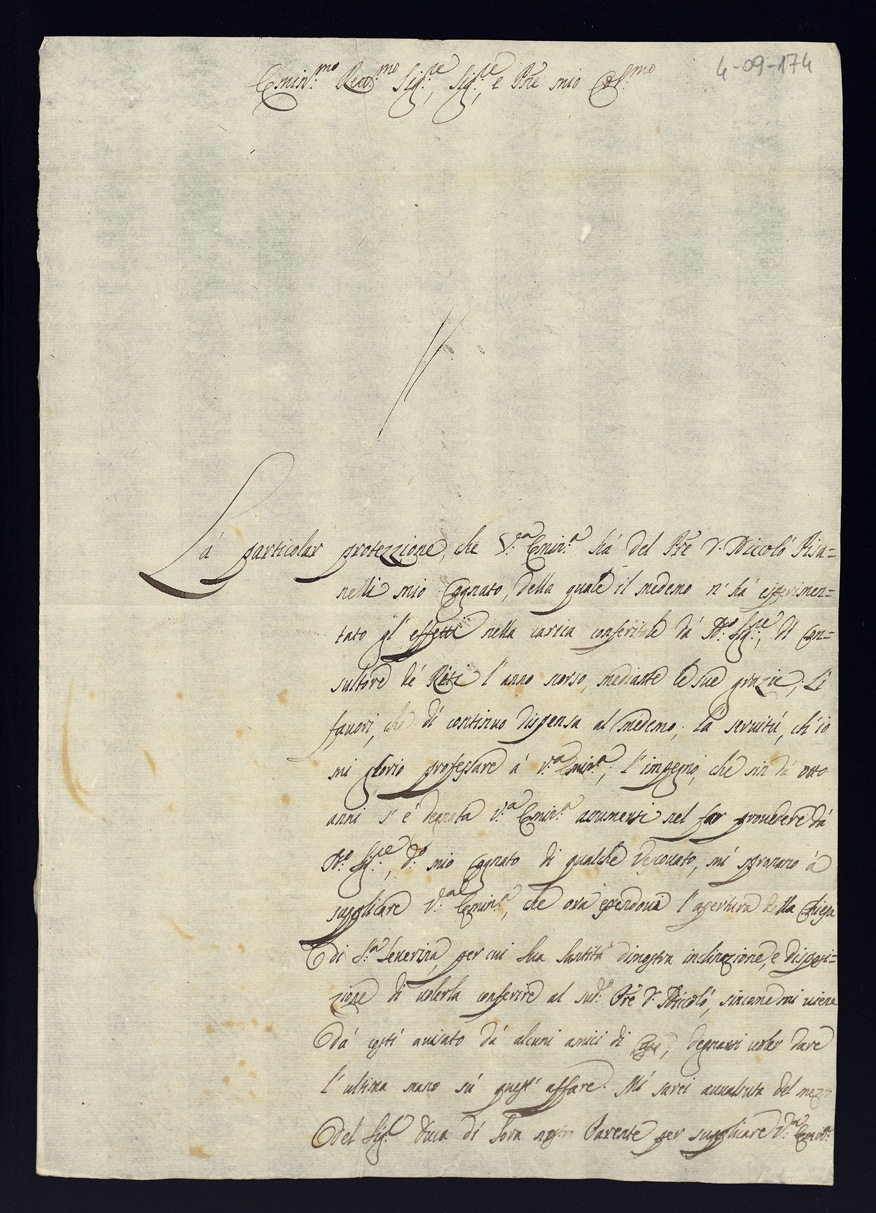 4-09-174
Emin.mo Reu.mo Sig.re, Sig.re, e Pñe mio Col.mo
Lá particolar protezzione, che V.ra Emin.a há del Pře D. Niccoló Pisa=
nelli mio Cognato, della quale il medemo n' há esperimen=
tato gl' effetti nella carica conferitale dá N.ro Sig.re, di Con=
sultore de' Riti l' anno scorso, mediante le sue grazie, Li
favori, che di continuo dispensa al medemo; la servitú, ch' io
mi glorio professare á V.ra Emin.a, l' impegni, che sin dá otto
anni s' é degnata V.ra Emin.a nel far provedere dá
N.ro Sig.re, d.o mio Cognato di qualche Vescovato, mi spronano á
supplicare V.ra Emin.a, che ora essendovi l' apertura della Chiesa
di S.ta Severina, per cui Sua Santitá dimostra inclinazione, e disposi=
zione di volerla conferire al sud.o Pře D. Niccoló, sincome mi viene
dá costí avisato dá alcuni amici di, degnarsi voler dare
l' ultima mano sú quest' affare. Mi sarei avvalsuta del mezzo
del Sig.r Duca di Sora nostro Parente per supplicare V.ra Emin.a